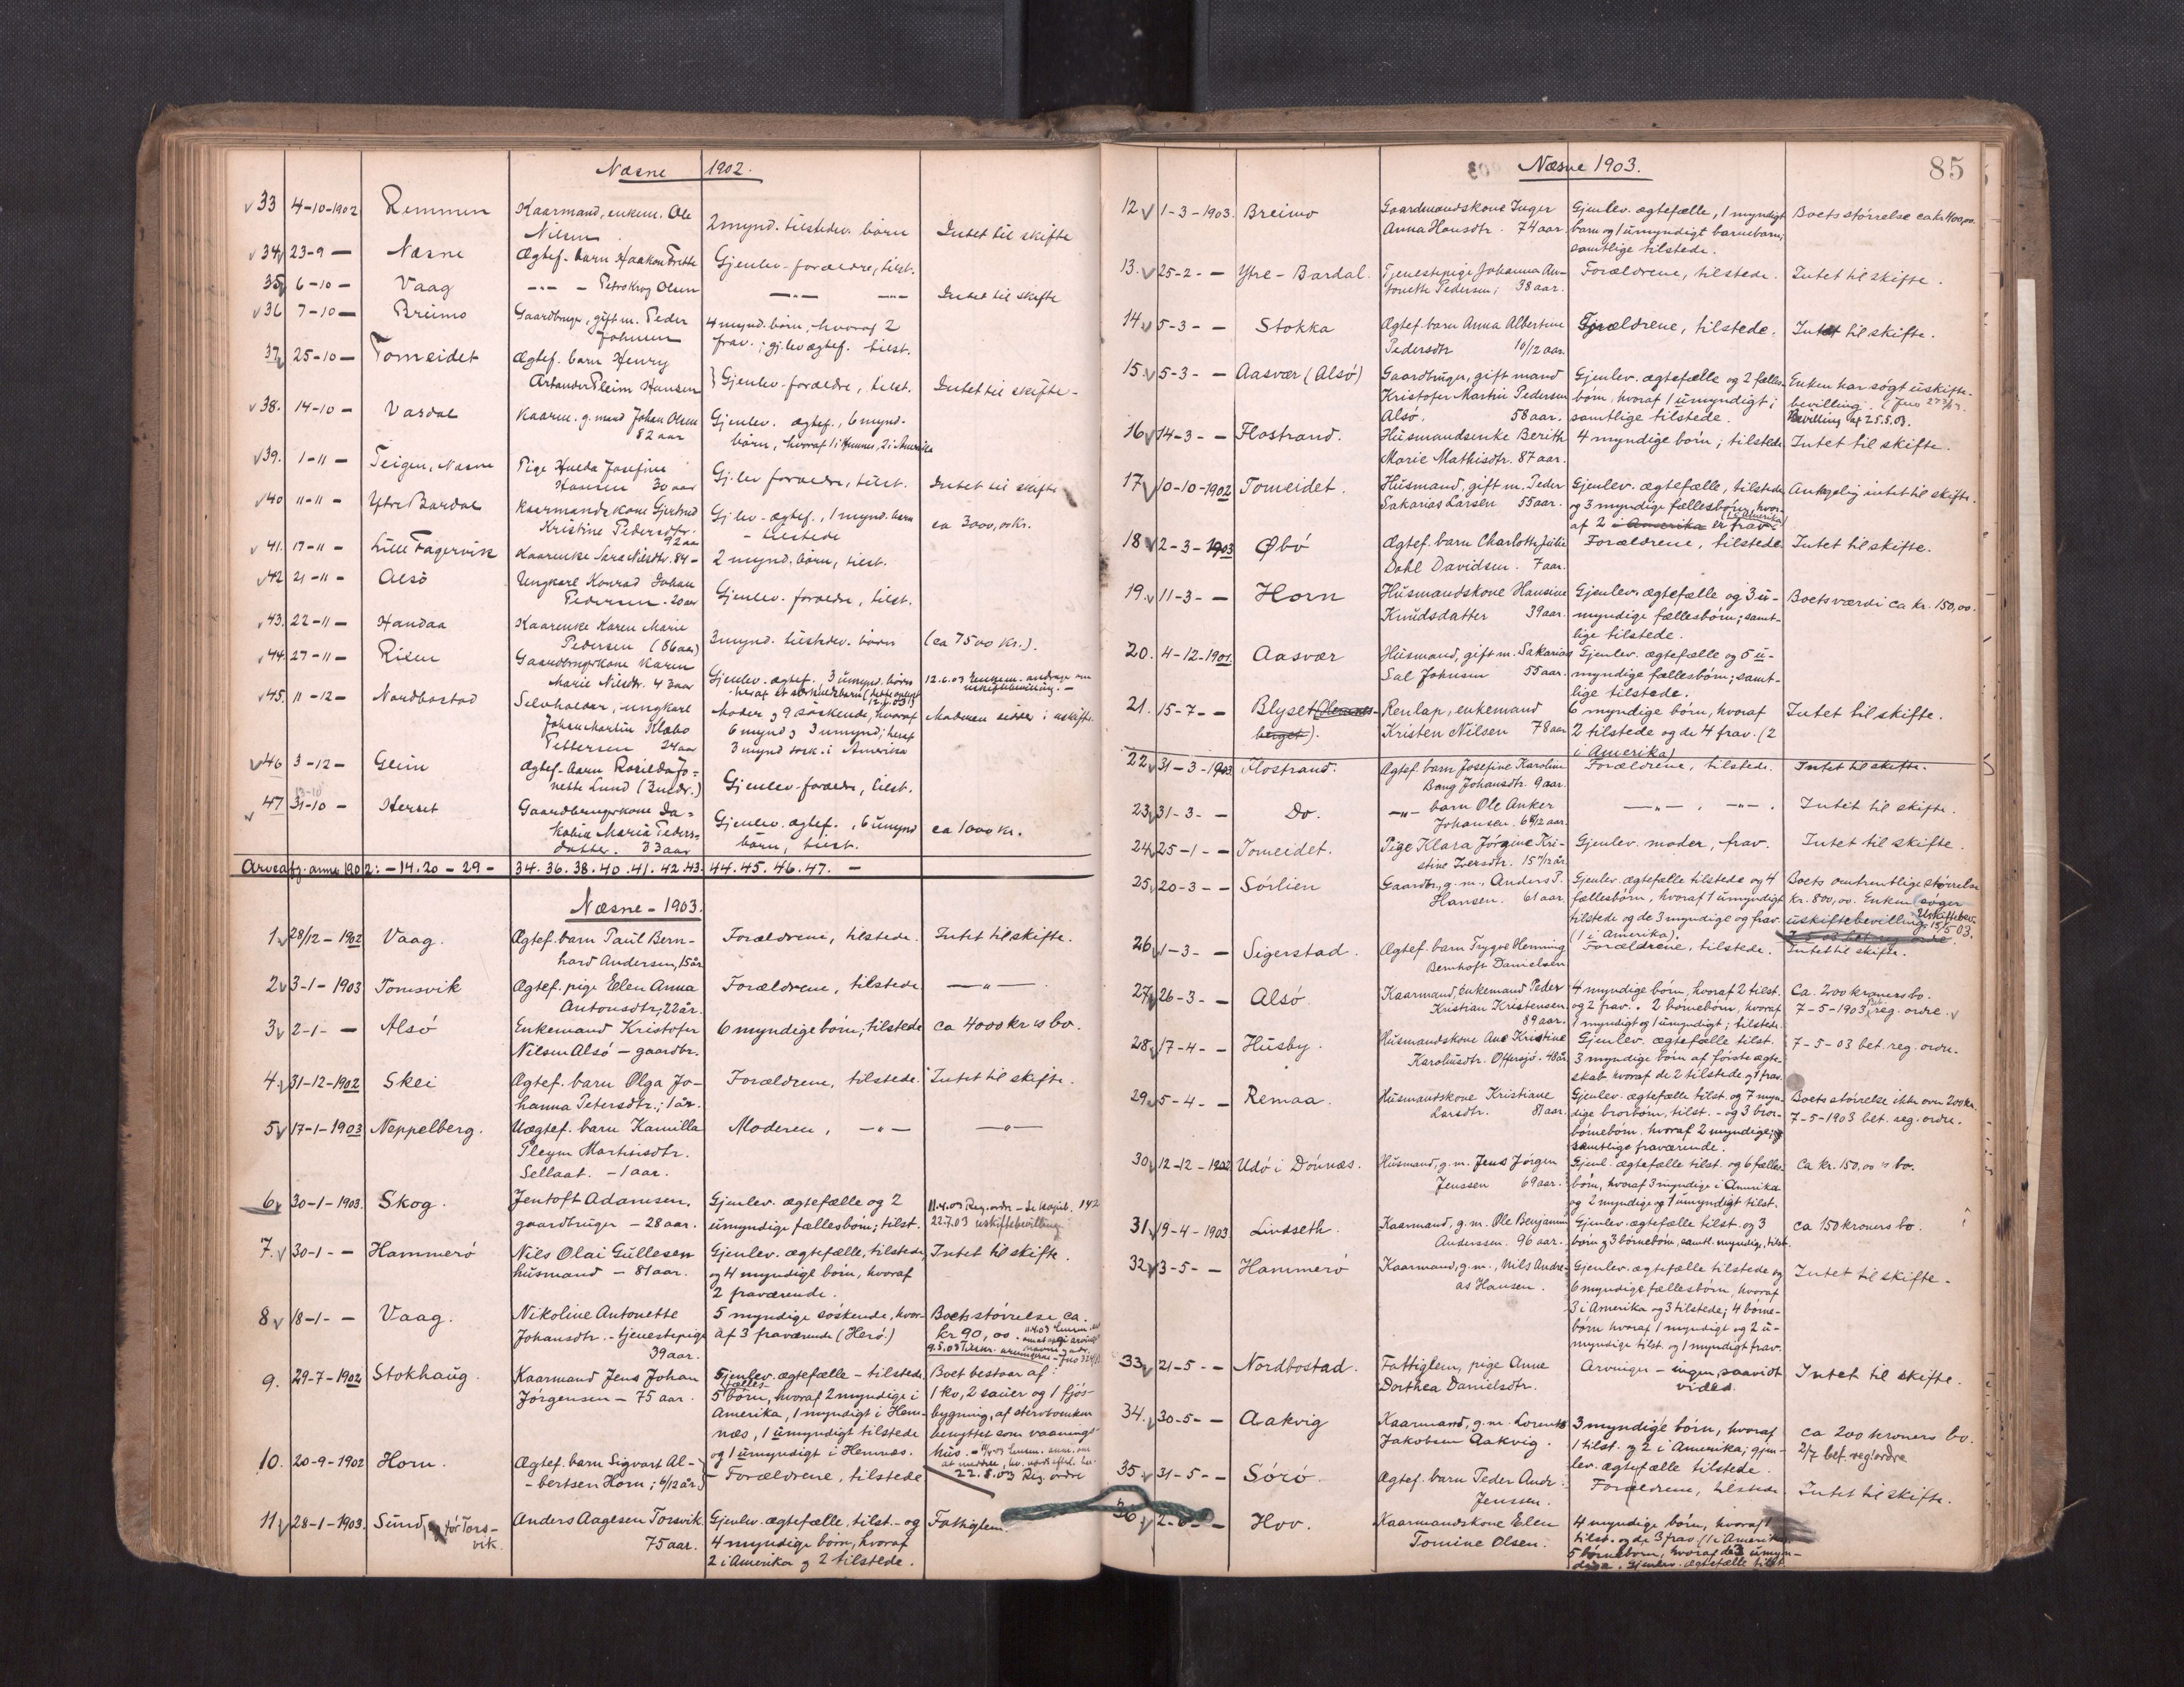 Næsne 1902.
33 4-10-1902 Remmen Kaarmand, enkem. Ole
Nilsen 2 mynd. tilstedev. børn Intet til skifte
34 23-9 — Næsne Ægtef. barn Haakon Gjenlev. forældre, tilst.
35 6-10 — Vaag —"— Petro Krog Olsen —"— —"— Intet til skifte
36 7-10 — Breimo Gaardbruger, gift m. Peder 4 mynd. børn, hvoraf 2
Johnsen frav.; gj.lev ægtef. tilst.
37 25-10 — Tomeidet Ægtef. barn Henry
Pleim Hansen } Gjenlev. forældre, tilst. Intet til skifte -
38. 14-10 — Vardal Kaarm. g. mand Johan Olsen Gjenlev. ægtef., 6 mynd.
82 aar børn, hvoraf 1 i Hemnes, 2 i Amerika
39. 1-11 — Teigen, Næsne Pige Hulda Josefine
Hansen 30 aar Gj.lev forældre, tilst. Intet til skifte
40 11-11 — Ytre Bardal Kaarmandskone Gjertrud Gj.lev. ægtef., 1 mynd. barn ca 3000,00 kr.
Kristine Pedersdtr. - tilstede
92 aar
41. 17-11 — Lille Fagervik Kaarenke Sara Nilsdtr. 84 - 2 mynd. børn, tilst.
42 21-11 — Alsø Ungkarl Konrad Johan
Pedersen. 20 aar Gjenlev. forældre, tilst.
43. 22-11 — Handaa Kaarenke Karen Marie
Pedersen (86 aar) 3 mynd. tilstedev. børn (ca 7500 kr.).
44. 27-11 — Risen Gaardbrugerkone Karen
Marie Nilsdtr. 43 aar Gjenlev. ægtef., 3 umynd. børn 12.6.03 Enkem. andrager om
uskiftebevilling. —
45. 11-12 — Nordbostad Selvholder, ungkarl Moder og 9 søskende, hvoraf Moderen sidder i uskifte.
Johan Martin Klæbo 6 mynd og 3 umynd; heraf
Pettersen 24 aar 3 mynd søsk. i Amerika
46 3-12 — Glein Ægtef. barn Rosilda Jo-
nette Lund (3 mdr.) Gjenlev. forældre, tilst.
13-10
47 31-10 — Herset Gaardbrugerkone Ja-
kobia Maria Peders- Gjenlev. ægtef., 6 umynd ca 1000 kr.
datter. 33 aar børn, tilst.
Arveafg. anm. 1902: — 14. 20 - 29 - 34. 36. 38. 40. 41. 42. 43. 44. 45. 46. 47. —
Næsne - 1903.
1 28/12 - 1902 Vaag. Ægtef. barn Paul Bern- Forældrene, tilstede. Intet til skifte.
hard Andersen, 15 år
2 3-1-1903 Tomsvik Ægtef. pige Elen Anna Forældrene, tilstede —"—
Antonsdtr; 22 år.
3 2-1- — Alsó Enkemand Kristofer 6 myndige børn; tilstede ca 4000 kr's bo.
Nilsen Alsó — gaardbr.
4. 31-12-1902 Skei Ægtef. barn Olga Jo- Forældrene, tilstede. Intet til skifte.
hanna Petersdtr.; 1 år.
5 17-1-1903 Neppelberg. Uægtef. barn Kamilla Moderen, —"— —"—
Pleym Martinisdtr.
Sellaat. - 1 aar.
6 30-1-1903. Skog. Jentoft Adamsen, Gjenlev. ægtefælle og 2 11.4.03 Reg. ordre - 142
gaardbruger - 28 aar. umyndige fællesbørn; tilst. 22.7.03 uskiftebevilling.
7. 30-1- — Hammerö Nils Olai Gullesen Gjenlev. ægtefælle, tilstede, Intet til skifte.
husmand - 81 aar. og 4 myndige børn, hvoraf
2 fraværende.
8 18-1- — Vaag. Nikoline Antonette 5 myndige søskende, hvor- Boets størrelse ca.
Johansdtr. - tjenestepige af 3 fraværende (Herö.) kr 90,00.
39 aar.
9. 29-7-1902 Stokhaug. Kaarmand Jens Johan Gjenlev. ægtefælle - tilstede Boet bestaar af
Jørgensen - 75 aar. 5 fælles børn, hvoraf 2 myndige i 1 ko, 2 sauer og 1 fjós-
Amerika, 1 myndigt i Hem- bygning, af stervboenken
næs, 1 umyndigt tilstede benyttet som vaanings-
og 1 umyndigt i Hemnæs. hus.
10. 20-9-1902 Horn. Ægtef. barn Sigvart Al-
- bertsen Horn; 6/12 år.} - Forældrene, tilstede 22.8.03 Reg. ordre
11 28-1-1903. Sund, för Tors- Anders Aagesen Torsvik. Gjenlev. ægtefælle, tilst. - og Fattiglem.
vik. 75 aar. 4 myndige børn, hvoraf
2 i Amerika og 2 tilstede.
Næsne 1903. 85
12 1-3-1903. Breimo Gaardmandskone Inger Gjenlev. ægtefælle, 1 myndigt Boets størrelse ca kr 400,00.
Anna Hansdtr. 74 aar. barn og 1 umyndigt barnebarn;
samtlige tilstede.
13. 25-2- — Ytre-Bardal. Tjenestepige Johanna An- Forældrene, tilstede. Intet til skifte.
tonette Pedersen; 38 aar.
14 5-3- — Stokka Ægtef. barn Anna Albertine Forældrene, tilstede. Intet til skifte.
Pedersdtr 10/12 aar.
15. 5-3- — Aasvær (Alsó) Gaardbruger, gift mand Gjenlev. ægtefælle og 2 fælles- Enken har søgt uskifte-
Kristofer Martin Pedersen børn, hvoraf 1 umyndigt; bevilling.
Alsó. 58 aar. samtlige tilstede. Bevilling 25.5.03.
16 14-3- — Flostrand. Husmandsenke Berith 4 myndige børn; tilstede Intet til skifte.
Marie Mathisdtr. 87 aar.
17 10-10-1902 Tomeidet. Husmand, gift m. Peder Gjenlev. ægtefælle, tilstede Antagelig intet til skifte.
Sakarias Larsen 55 aar. og 3 myndige fællesbørn, hvor-
af 2 i Amerika er frav. (i Amerika)
18 2-3-1903 Øbó Ægtef. barn Charlotte Julie Forældrene, tilstede. Intet til skifte.
Dahl Davidsen. 7 aar.
19. 11-3- — Horn Husmandskone Hansine Gjenlev. ægtefælle og 3 u- Boets værdi ca kr. 150,00.
Knudsdatter 39 aar. myndige fællesbørn; samt-
lige tilstede.
20. 4-12-1901. Aasvær Husmand, gift m. Sakarias Gjenlev. ægtefælle og 5 u-
Sal Johnsen 55 aar. myndige fællesbørn; samt-
lige tilstede.
21. 15-7- — Blyset Renlap, enkemand 6 myndige børn, hvoraf Intet til skifte.
Kristen Nilsen 78 aar 2 tilstede og de 4 frav. (2
i Amerika)
22 31-3-1903. Flostrand. Ægtef. barn Josefine Karoline Forældrene, tilstede. Intet til skifte.
Bang Johansdtr. 9 aar.
23 31-3- — Do. —"— barn Ole Anker —"—, —"—. Intet til skifte.
Johansen, 6 /12 aar.
24 25-1- — Tomeidet. Pige Klara Jörgine Kri- Gjenlev. moder, frav. Intet til skifte.
stine Iversdtr. 15 /12 år.
25 20-3- — Sörlien Gaardbr., g. m., Anders P. Gjenlev. ægtefælle tilstede og 4 Boets omtrentlige størrelse
Hansen. 61 aar. fællesbørn, hvoraf 1 umyndigt kr. 800,00. Enken søger
tilstede og de 3 myndige og frav. uskiftebevilling. Uskiftebev. 15/5 03.
(1 i Amerika).
26 1-3- — Sigerstad. Ægtef. barn Trygve Henning Forældrene, tilstede. Intet til skifte.
Bernhoft Danielsen
27 26-3- — Alsó Kaarmand, Enkemand Peder 4 myndige børn, hvoraf 2 tilst. Ca. 200 kroners bo.
Kristian Kristensen og 2 frav. 2 børnebørn, hvoraf 7-5-1903 Bet. reg. ordre.
89 aar. 1 myndigt og 1 umyndigt; tilstede.
28 17-4- — Husby. Husmandskone Ane Kristine Gjenlev. ægtefælle tilst. 7-5-03 bet. reg. ordre.
Karolusdtr. Offersjó. 48 år 3 myndige børn af første ægte-
skab hvoraf de 2 tilstede og 1 frav.
29 5-4- — Remaa. Husmandskone Kristiane Gjenlev. ægtefælle tilst. og 7 myn- Boets størrelse ikke over 200 kr.
Larsdtr. 81 aar. dige brorbørn, tilst. - og 3 bror- 7-5-1903 bet. reg. ordre.
børnebørn. hvoraf 2 myndige;
samtlige fraværende.
30 12-12-1902 Udö i Dönnæs. Husmand, g. m. Jens Jörgen Gjenl. ægtefælle tilst. og 6 fælles- Ca kr. 150,00's bo.
Jenssen 69 aar. børn, hvoraf 3 myndige i Amerika
og 2 myndige og 1 umyndigt tilst.
31 19-4-1903. Lindseth. Kaarmand, g. m. Ole Benjamin Gjenlev. ægtefælle tilst. og 3 ca 150 kroners bo.
Anderssen. 96 aar. børn og 3 børnebørn, samtl. myndige, tilst.
32 3-5- — Hammerö Kaarmand, g. m., Nils Andre- Gjenlev. ægtefælle tilstede og Intet til skifte.
as Hansen. 6 myndige fællesbørn, hvoraf
3 i Amerika og 3 tilstede; 4 børne-
børn hvoraf 1 myndigt og 2 u-
myndige tilst. og 1 myndigt frav.
33 21-5- — Nordbostad. Fattiglem, pige Anne Arvinger - ingen, saavidt Intet til skifte.
Dorthea Danielsdtr. vides.
34. 30-5- — Aakvig Kaarmand, g. m. Lorents 3 myndige børn, hvoraf ca 200 kroners bo.
Jakobsen Aakvig. 1 tilst. og 2 i Amerika; gjen- 2/7 bet. reg. ordre
lev. ægtefælle tilstede.
35 31-5- — Sörö. Ægtef. barn Peder Andr. Forældrene, tilstede. Intet til skifte.
Jenssen.
36 2-6- — Hov. Kaarmandskone Elen 4 myndige børn, hvoraf 1
Tomine Olsen. tilst. og de 3 frav. (1 i Amerika)
5 børnebørn, hvoraf de 3 umyn-
dige. Gjenlev. ægtefælle tilst.